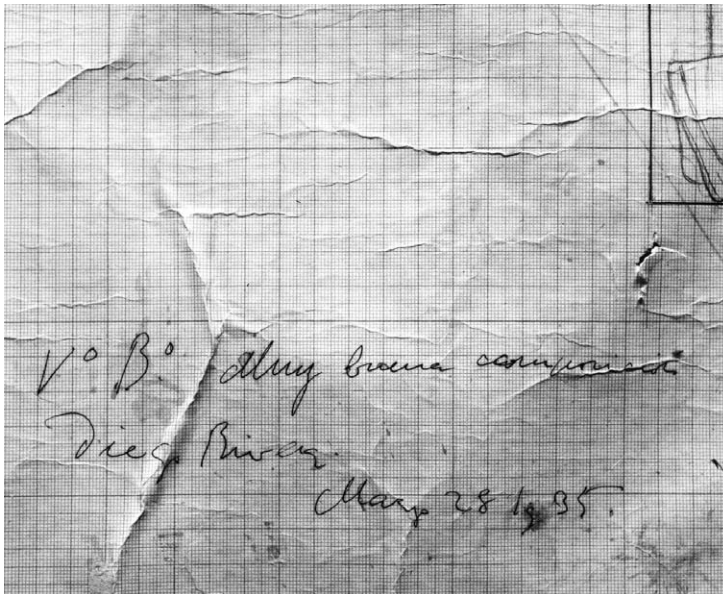 Vº Bº Muy buena composición
Diego Rivera.
Marzo 28 1935.